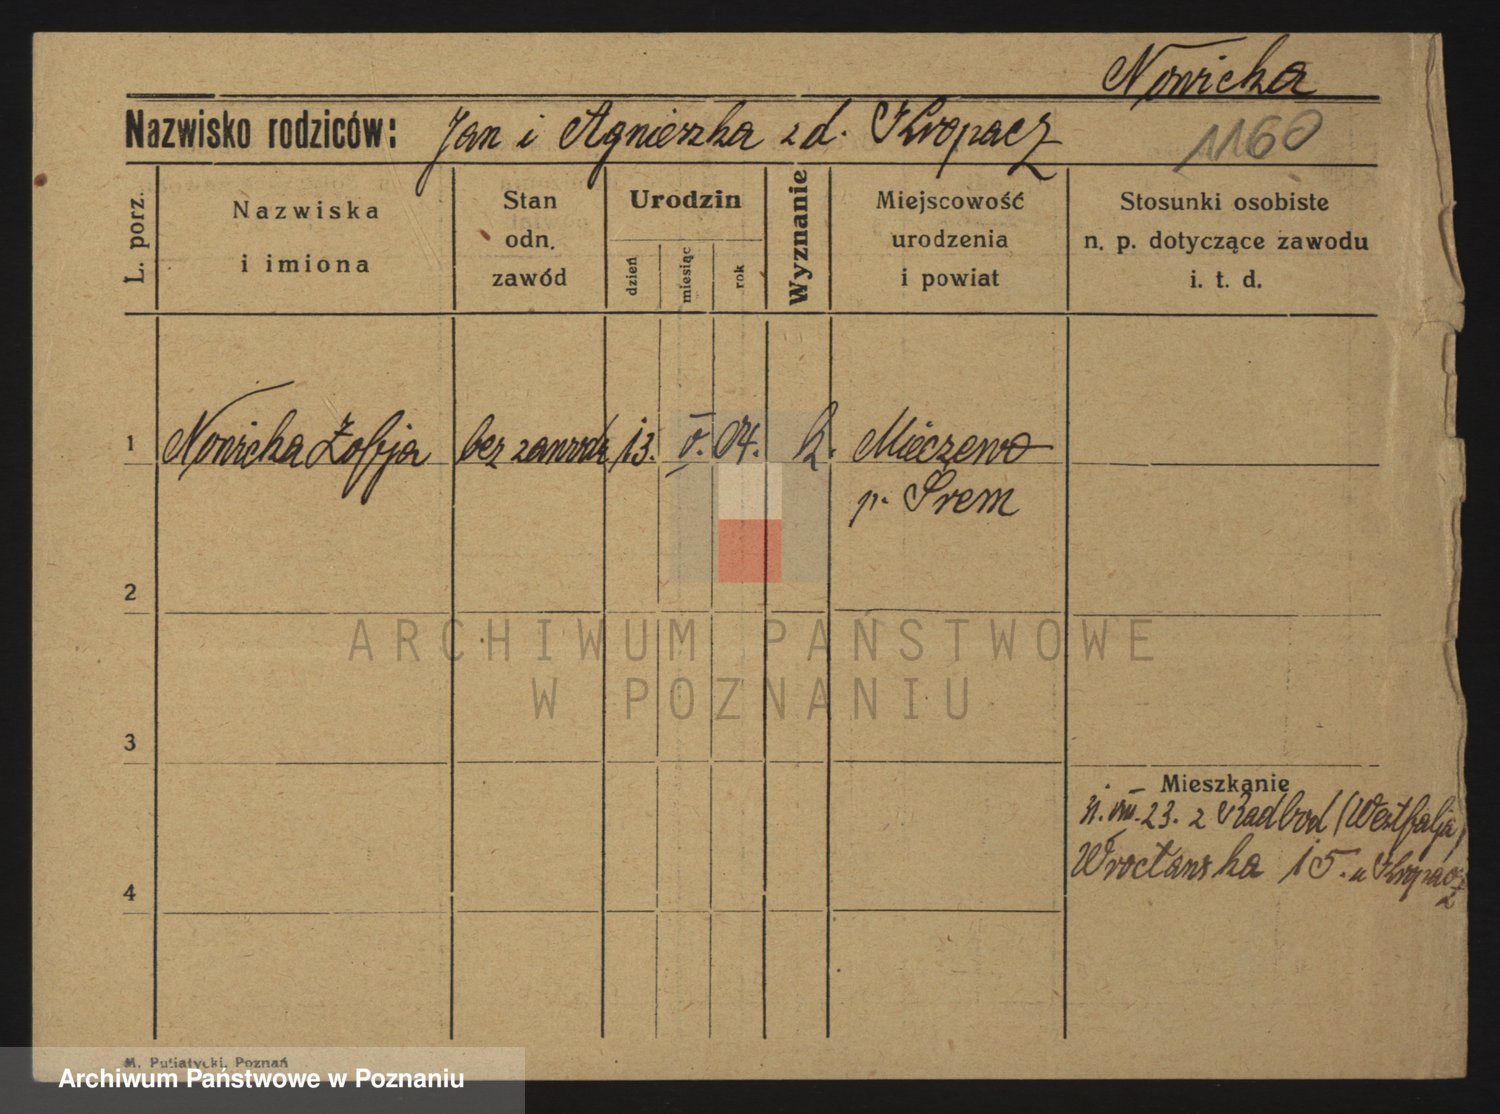 Nowicka
Nazwisko rodziców: Jan i Agnieszka zd. Kropacz
1160
L. porz.
Nazwiska
i imiona
Stan
odn.
zawód
Urodzin
dzień
miesiąc
rok
Wyznanie
Miejscowość
urodzenia
i powiat
Stosunki osobiste
n. p. dotyczące zawodu
i. t. d.
1 Nowicka Zofja bez zawodu 13. V. 04. k. Mieczewo
p. Śrem
2
ARCHIWUM PAŃSTWOWE
W POZNANIU
3
Mieszkanie
VIII. 23. z Radbod (Westfalja)
Wrocławska 15. u Kropacz
4
M. Putiatycki, Poznań
Archiwum Państwowe w Poznaniu